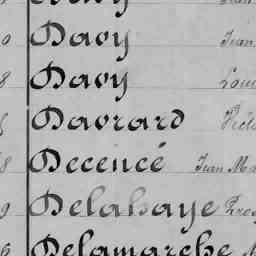 Davy Jean
8 Davy Loui
Davrard
8 Decencé Jean Ma
9 Delahaye
Delamarche